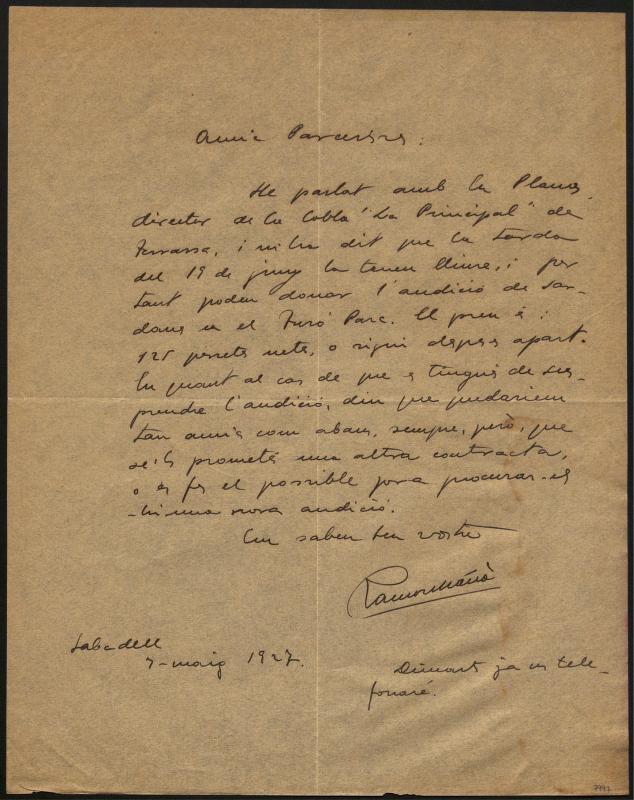 Amic Parcerisas:
He parlat amb en Planas,
director de la Cobla "La Principal" de
Terrassa, i m'ha dit que la tarda
del 19 de juny la tenen lliure, i per
tant poden donar l'audició de sar-
danes en el Turó Parc. El preu és:
125 pessetes netes, o sigui despeses apart.
En quant al cas de que es tingués de sus-
prendre l'audició, diu que quedariem
tan amics com abans, sempre, però, que
se'ls prometés una altra contracta,
o es fes el possible per a procurar-els
-hi una nova audició.
Em saben ben vostre
Ramon Mañà
Sabadell
7-maig 1927.
Dimarts ja us tele-
fonaré.
7797